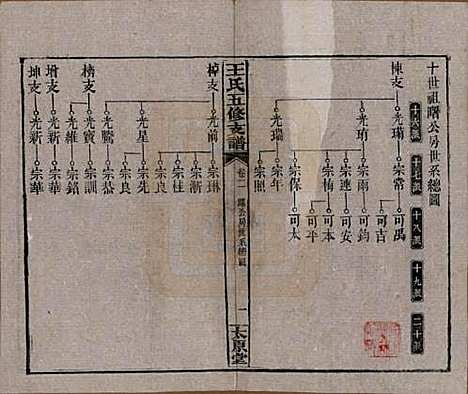 十世祖曙公房世系總圖
十六派 十七派 十八派 十九派 二十派
棟支 光瑀 宗常 可禹
可吉
光珛 宗雨 可鈞
宗連 可安
宗梅 可本
可平
宗保 可太
光瑞 宗照
王氏五修支譜
卷二
曙公房世系總圖
一
太原堂
樟支 光前 宗琳
宗漸
宗桂
光星 宗先
宗良
光騰 宗良
宗恭
榜支 光寶 宗訓
光維 宗銘
增支 光新 宗華
坤支 光新 宗華